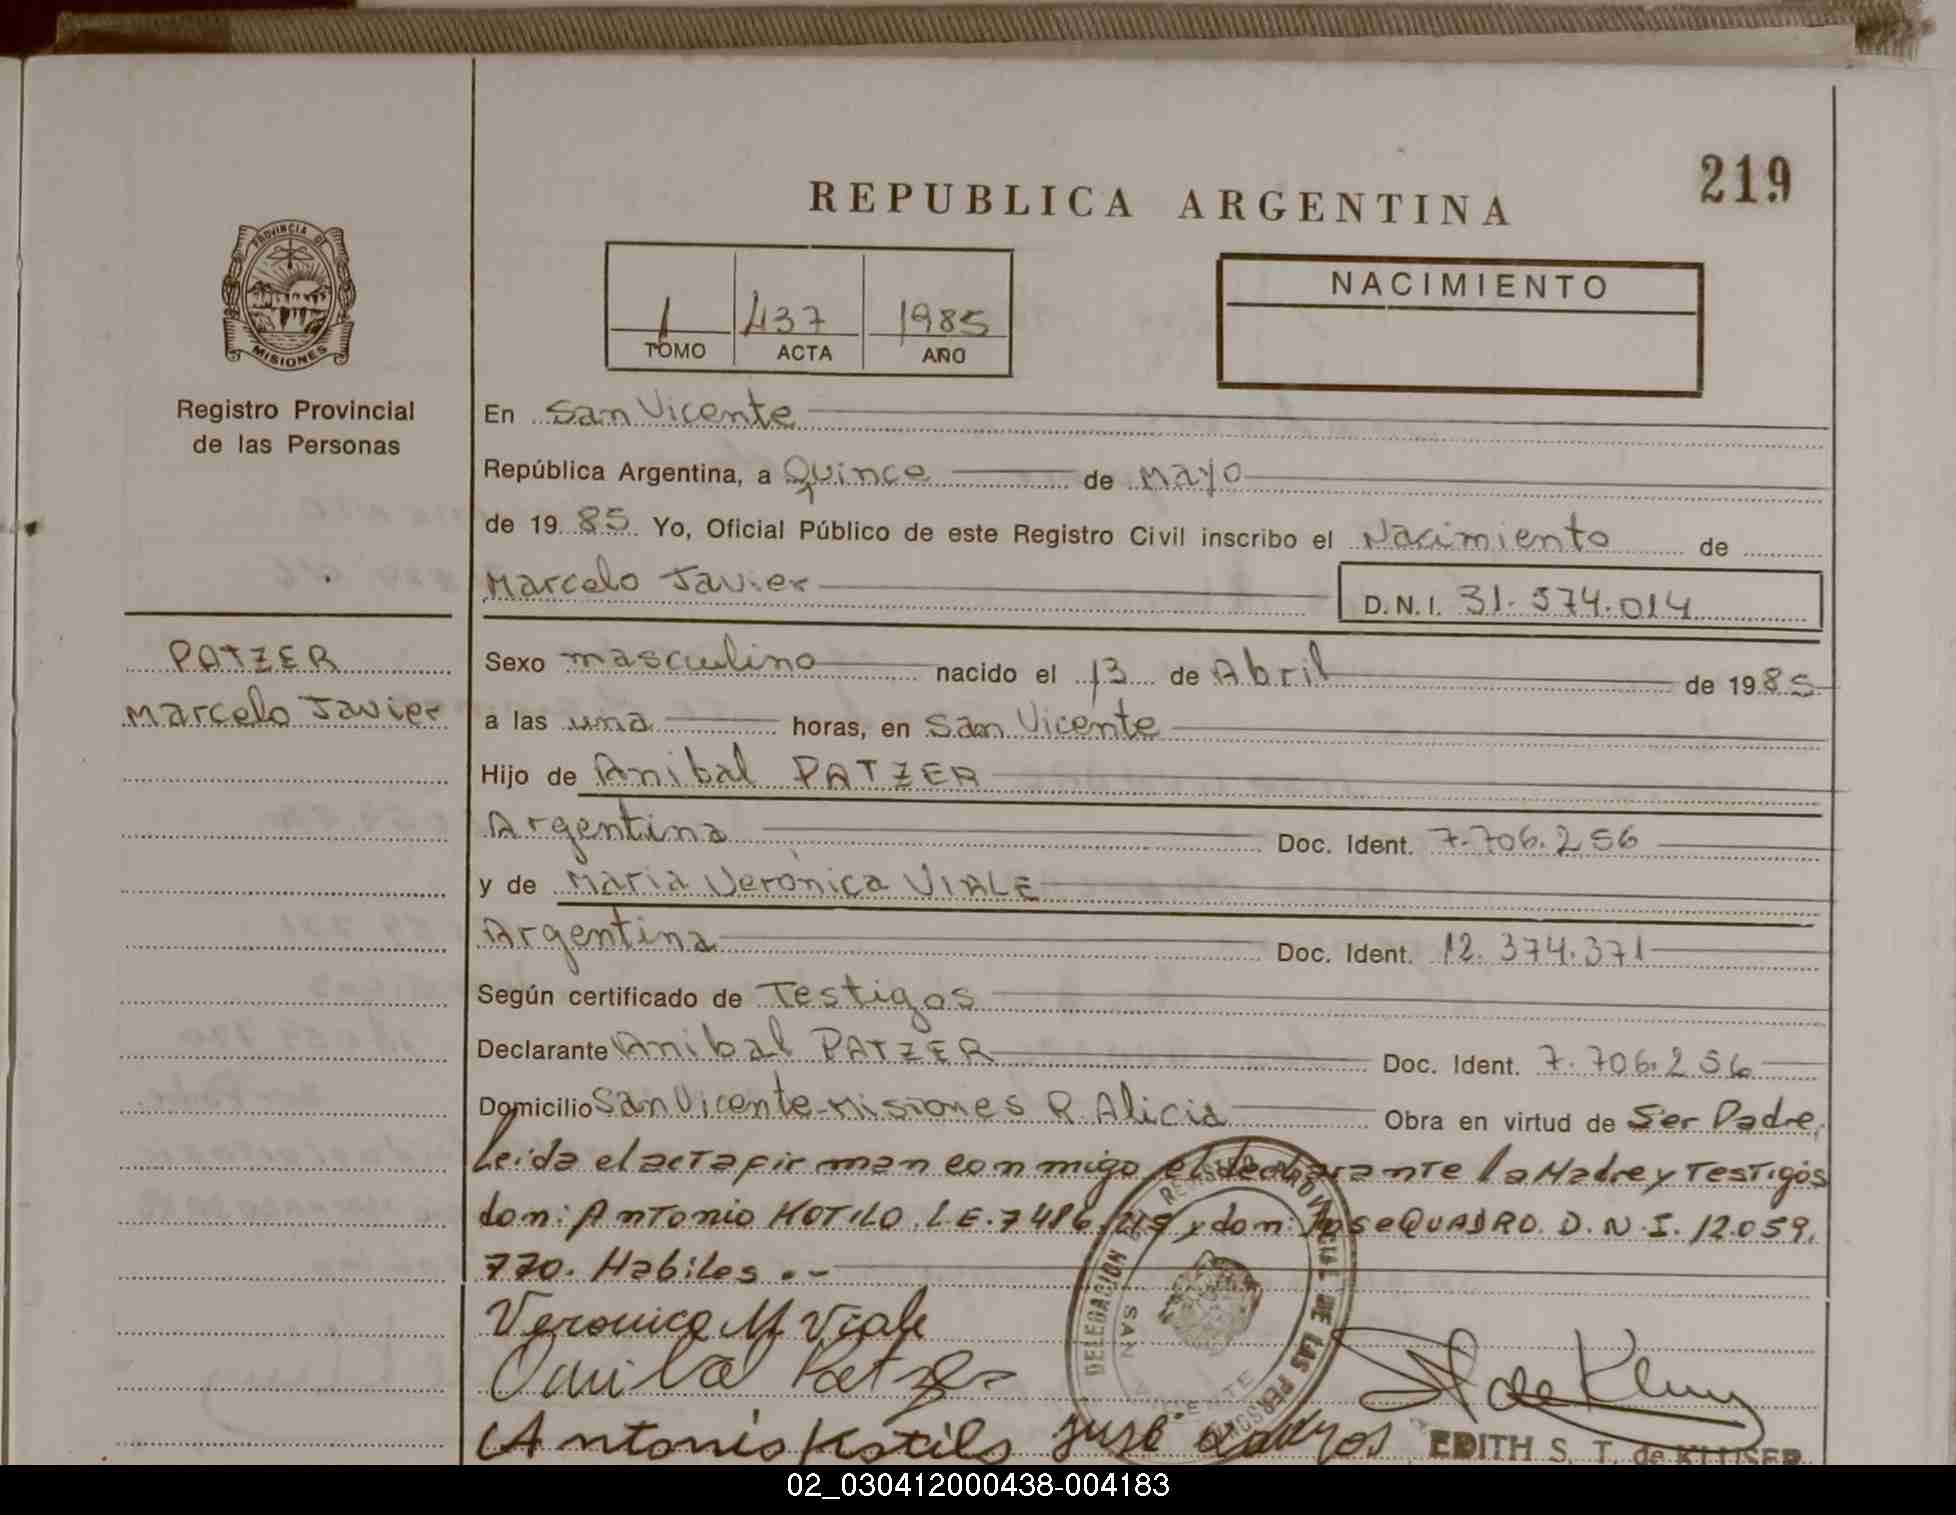 219
REPUBLICA ARGENTINA
PROVINCIA DE
MISIONES
Registro Provincial
de las Personas
1 437 1985
TOMO ACTA AÑO
NACIMIENTO
En San Vicente
República Argentina, a Quince de Mayo
de 19 85 Yo, Oficial Público de este Registro Civil inscribo el Nacimiento de
Marcelo Javier D.N.I. 31.574.014
PATZER
Marcelo Javier
Sexo masculino nacido el 13 de Abril de 1985
a las una horas, en San Vicente
Hijo de Anibal PATZER
Argentina Doc. Ident. 7.706.256
y de Maria Verónica VIALE
Argentina Doc. Ident. 12.374.371
Según certificado de Testigos
Declarante Anibal PATZER Doc. Ident. 7.706.256
Domicilio San Vicente-Misiones P. Alicia Obra en virtud de Ser Padre,
Leida el acta firman conmigo el declarante la Madre y Testigos
don: Antonio KOTILO L.E. 7486.215 y don: Jose QUADRO D.N.I. 12.059.
770. Habiles .-
Veronica M Viale
Patzer
Antonio Kotilo José
DELEGACION REGISTRO PROVINCIAL DE LAS PERSONAS
SAN VICENTE
EDITH S. T. de KLUSER
02_030412000438-004183